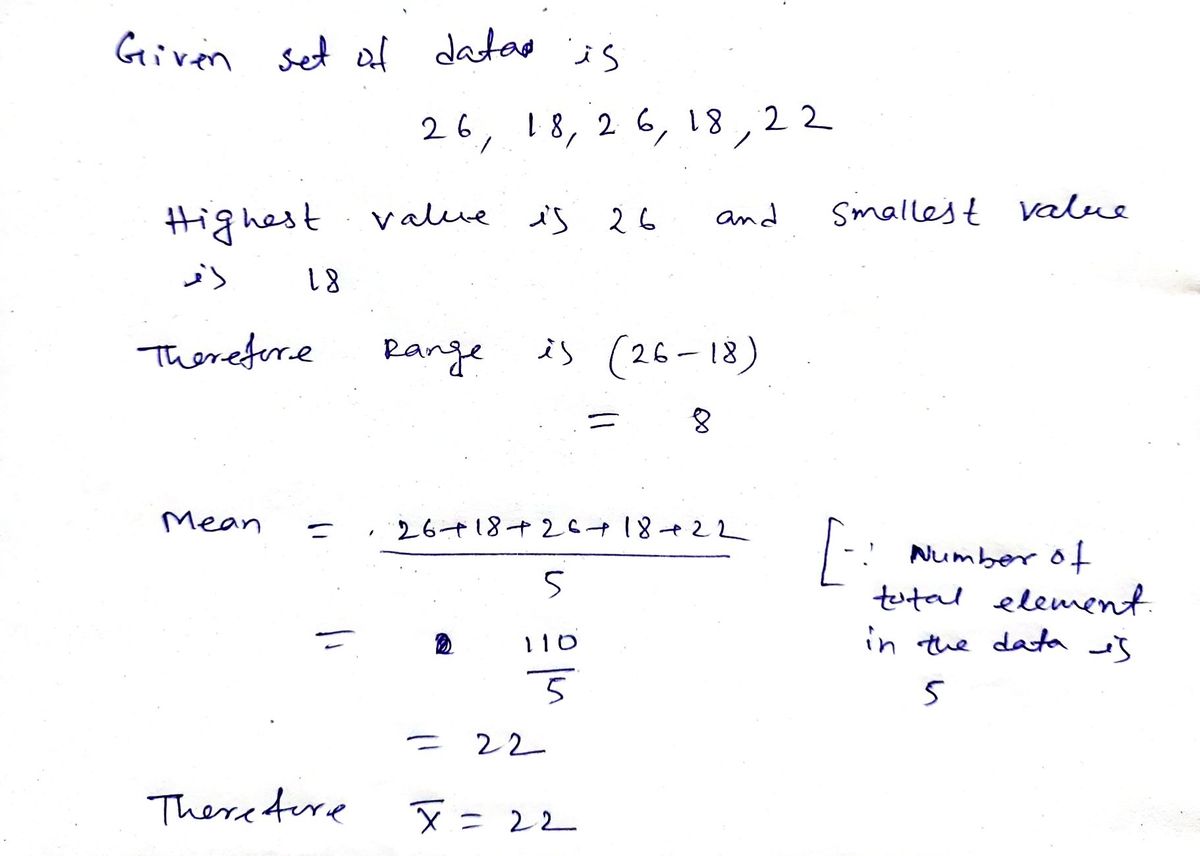 Given set of data is
26, 18, 26, 18, 22
Highest value is 26 and smallest value
is 18
Therefore Range is (26-18)
= 8
Mean = 26+18+26+18+22
5
= 110
5
= 22
[∵ Number of
total element
in the data is
5
Therefore x̄ = 22